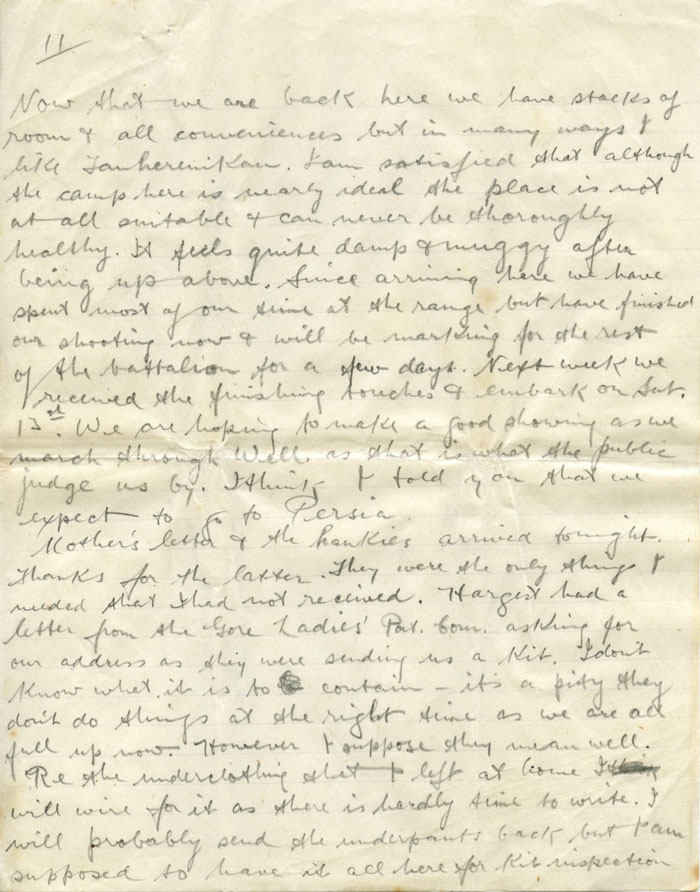 11
Now that we are back here we have stacks of
room & all conveniences but in many ways I
like Tauherenikau. I am satisfied that although
the camp here is nearly ideal the place is not
at all suitable & can never be thoroughly
healthy. It feels quite damp & muggy after
being up above. Since arriving here we have
spent most of our time at the range but have finished
our shooting now & will be marking for the rest
of the battalion for a few days. Next week we
received the finishing touches & embark on Sat.
13st. We are hoping to make a good showing as we
march through Well. as that is what the public
judge us by. I think I told you that we
expect to go to Persia.
Mother's letter & the hankies arrived tonight.
Thanks for the latter. They were the only things I
needed that I had not received. Hargest had a
letter from the Gore Ladies' Pat. Com. asking for
our address as they were sending us a Kit. I don't
know what it is to contain - it's a pity they
don't do things at the right time as we are all
full up now. However I suppose they mean well.
Re the underclothing that I left at home I
will wire for it as there is hardly time to write. I
will probably send the underpants back but I am
supposed to have it all here for Kit inspection